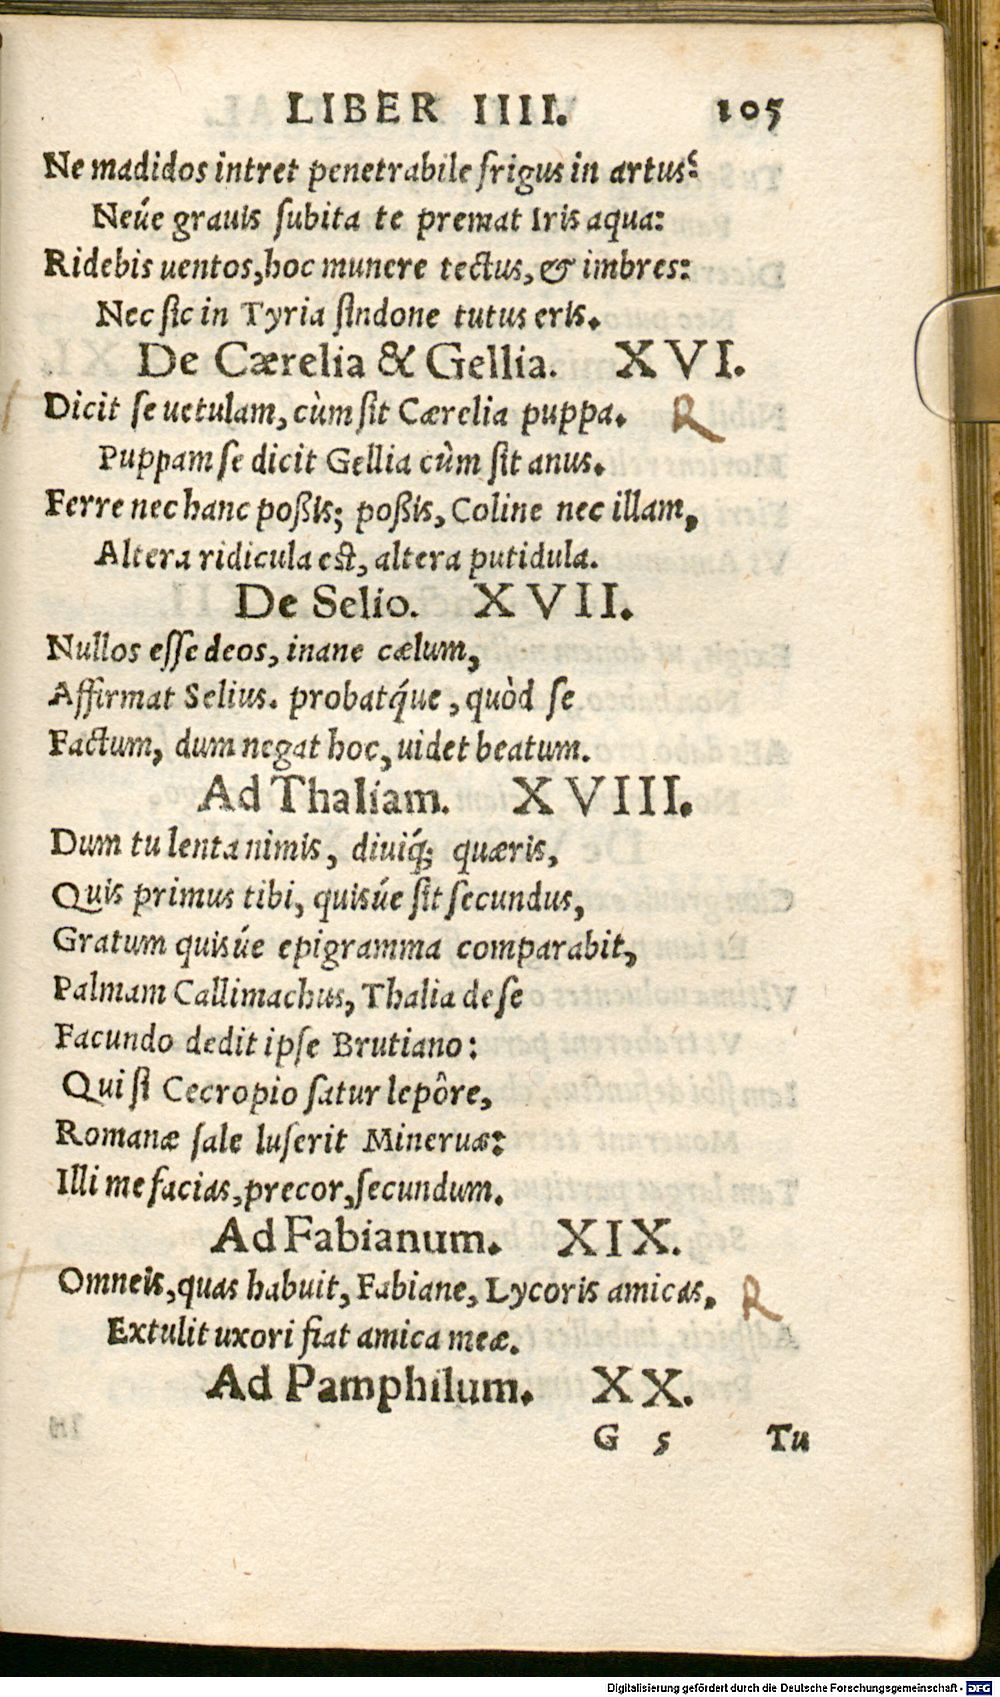 LIBER IIII. 105
Ne madidos intret penetrabile frigus in artus:
Neúe grauis subita te premat Iris aqua:
Ridebis uentos, hoc munere tectus, & imbres:
Nec sic in Tyria sindone tutus eris.
De Cærelia & Gellia. XVI.
Dicit se uetulam, cùm sit Cærelia puppa. R
Puppam se dicit Gellia cùm sit anus.
Ferre nec hanc poßis; poßis, Coline nec illam,
Altera ridicula est, altera putidula.
De Selio. XVII.
Nullos esse deos, inane cælum,
Affirmat Selius. probatq́ue, quòd se
Factum, dum negat hoc, uidet beatum.
Ad Thaliam. XVIII.
Dum tu lenta nimis, diuiq́; quæris,
Quis primus tibi, quisúe sit secundus,
Gratum quisúe epigramma comparabit,
Palmam Callimachus, Thalia de se
Facundo dedit ipse Brutiano:
Qui si Cecropio satur lepôre,
Romanæ sale luserit Mineruæ:
Illi me facias, precor, secundum.
Ad Fabianum. XIX.
Omneis, quas habuit, Fabiane, Lycoris amicas, R
Extulit uxori fiat amica meæ.
Ad Pamphilum. XX.
G 5 Tu
Digitalisierung gefördert durch die Deutsche Forschungsgemeinschaft - DFG